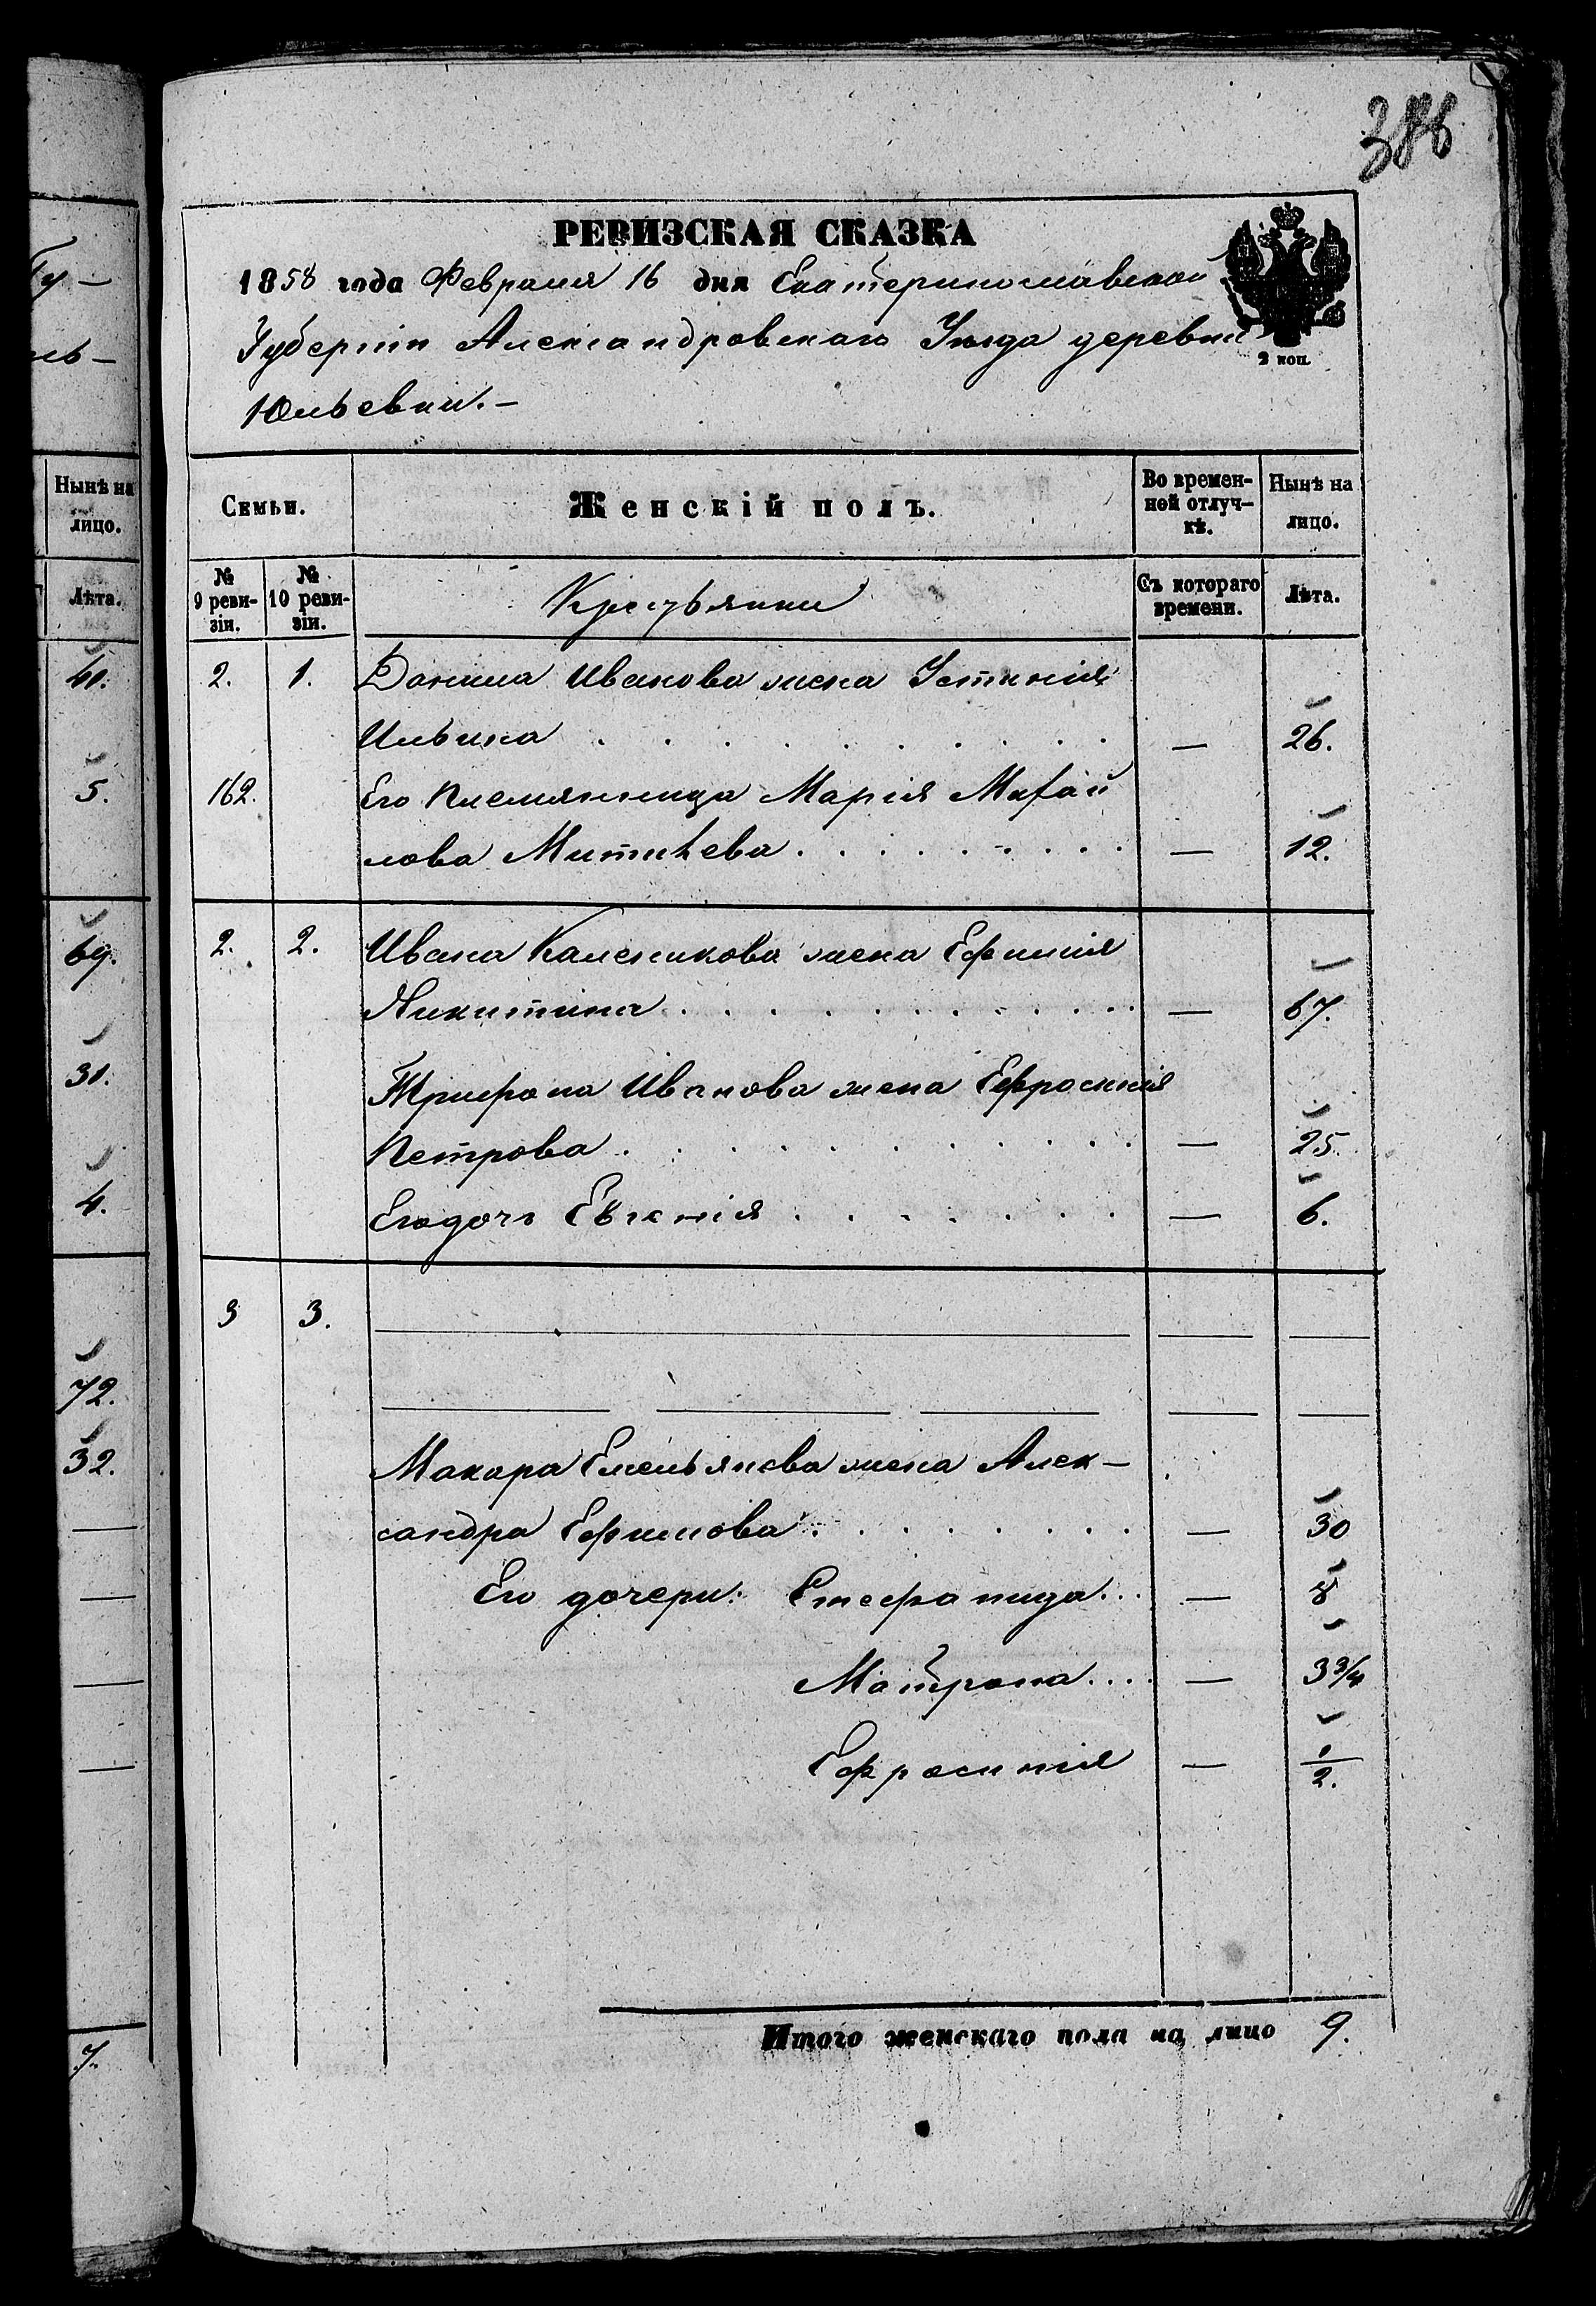 388
РЕВИЗСКАЯ СКАЗКА
1858 года Февраля 16 дня Екатеринославской
Губерніи Александровскаго Уѣзда деревни
2 коп.
Юльевки.-
Ту-
нь-
Нынѣ на
лицо.
Лѣта.
41.
5.
69.
31.
4.
72.
32.
7.
Семьи.
Женскій полъ.
Во времен-
ной отлуч-
кѣ.
Нынѣ на
лицо.
№
9 реви-
зіи.
№
10 реви-
зіи.
Крестьянки
Съ котораго
времени.
Лѣта.
2. 1. Данила Иванова жена Устинія
Ильина . . . . . . . . . — 26.
162. Его племянница Марія Михай
лова Митичева . . . . . . . . . — 12.
2. 2. Ивана Калесникова жена Ефимія
Никитина . . . . . . . . . — 67.
Трифона Иванова жена Ефросинія
Петрова . . . . . . . . . — 25.
Его дочь Евгенія . . . . . . . — 6.
3 3.
Макара Емельянова жена Алек-
сандра Ефимова . . . . . . . . — 30
Его дочери: Епестранида... — 8
Матрона.... — 3 3/4
Ефросинія — 1/2.
Итого женскаго пола на лицо 9.